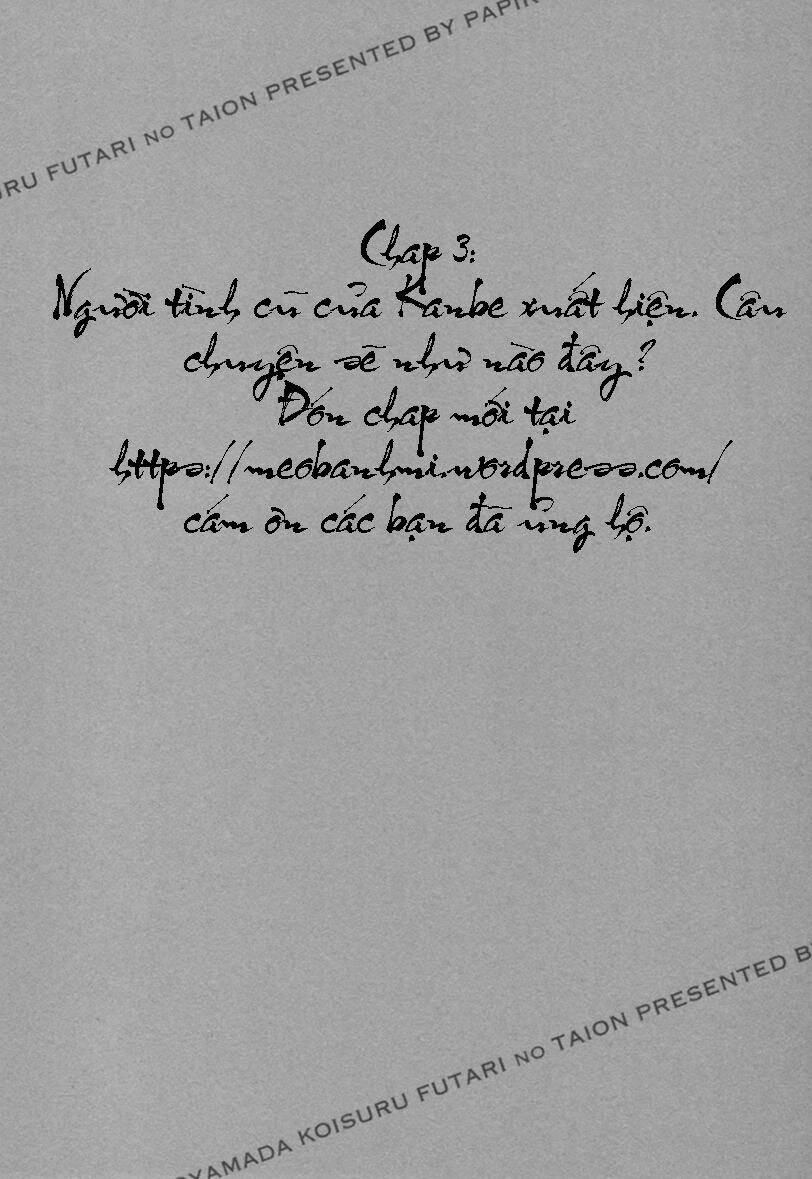 URU FUTARI NO TAION PRESENTED BY PAPIR
Chap 3:
Người tình cũ của Kanbe xuất hiện. Câu
chuyện sẽ như nào đây?
Đón chap mới tại
https://meobanhmi.wordpress.com/
cám ơn các bạn đã ủng hộ.
OYAMADA KOISURU FUTARI NO TAION PRESENTED B